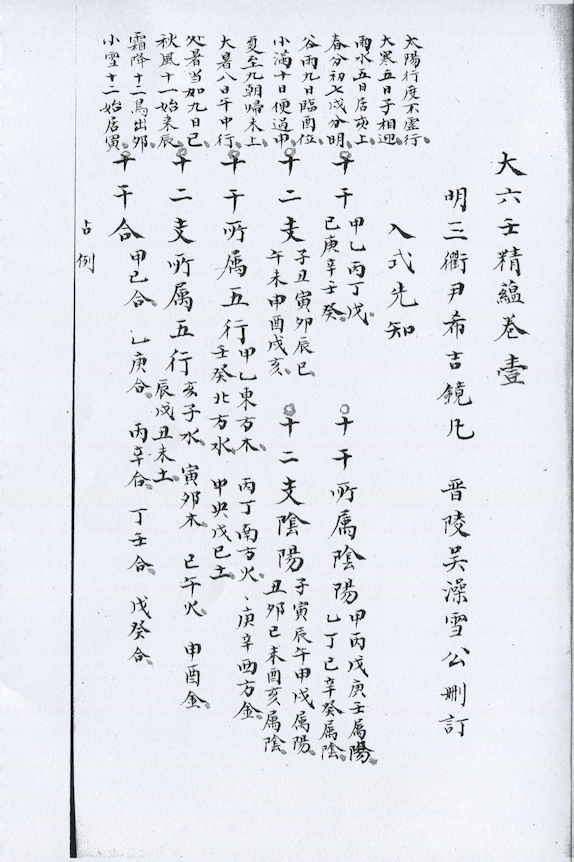 大六壬精蘊卷壹
明三衢尹希吉鏡凡 晋陵吴澡雪公刪訂
入式先知
太陽行度不虛行
大寒五日子相迎
雨水五日居亥上
春分初七戌分明
谷雨九日臨酉位
小滿十日便過申
夏至九朝歸未上
大暑八日午中行
处暑当如九日巳
秋風十一始来辰
霜降十二馬出夘
小雪十二始居寅
十干
甲乙丙丁戊
己庚辛壬癸
十干所属陰陽
甲丙戊庚壬属陽
乙丁己辛癸属陰
十二支
子丑寅夘辰巳
午未申酉戌亥
十二支陰陽
子寅辰午甲戌属陽
丑夘巳未酉亥属陰
十干所属五行
甲乙東方木 丙丁南方火、庚辛西方金
壬癸北方水 中央戊己土
十二支所属五行
亥子水 寅夘木 巳午火 申酉金
辰戌丑未土
十干合 甲己合 乙庚合 丙辛合 丁壬合 戊癸合
占例